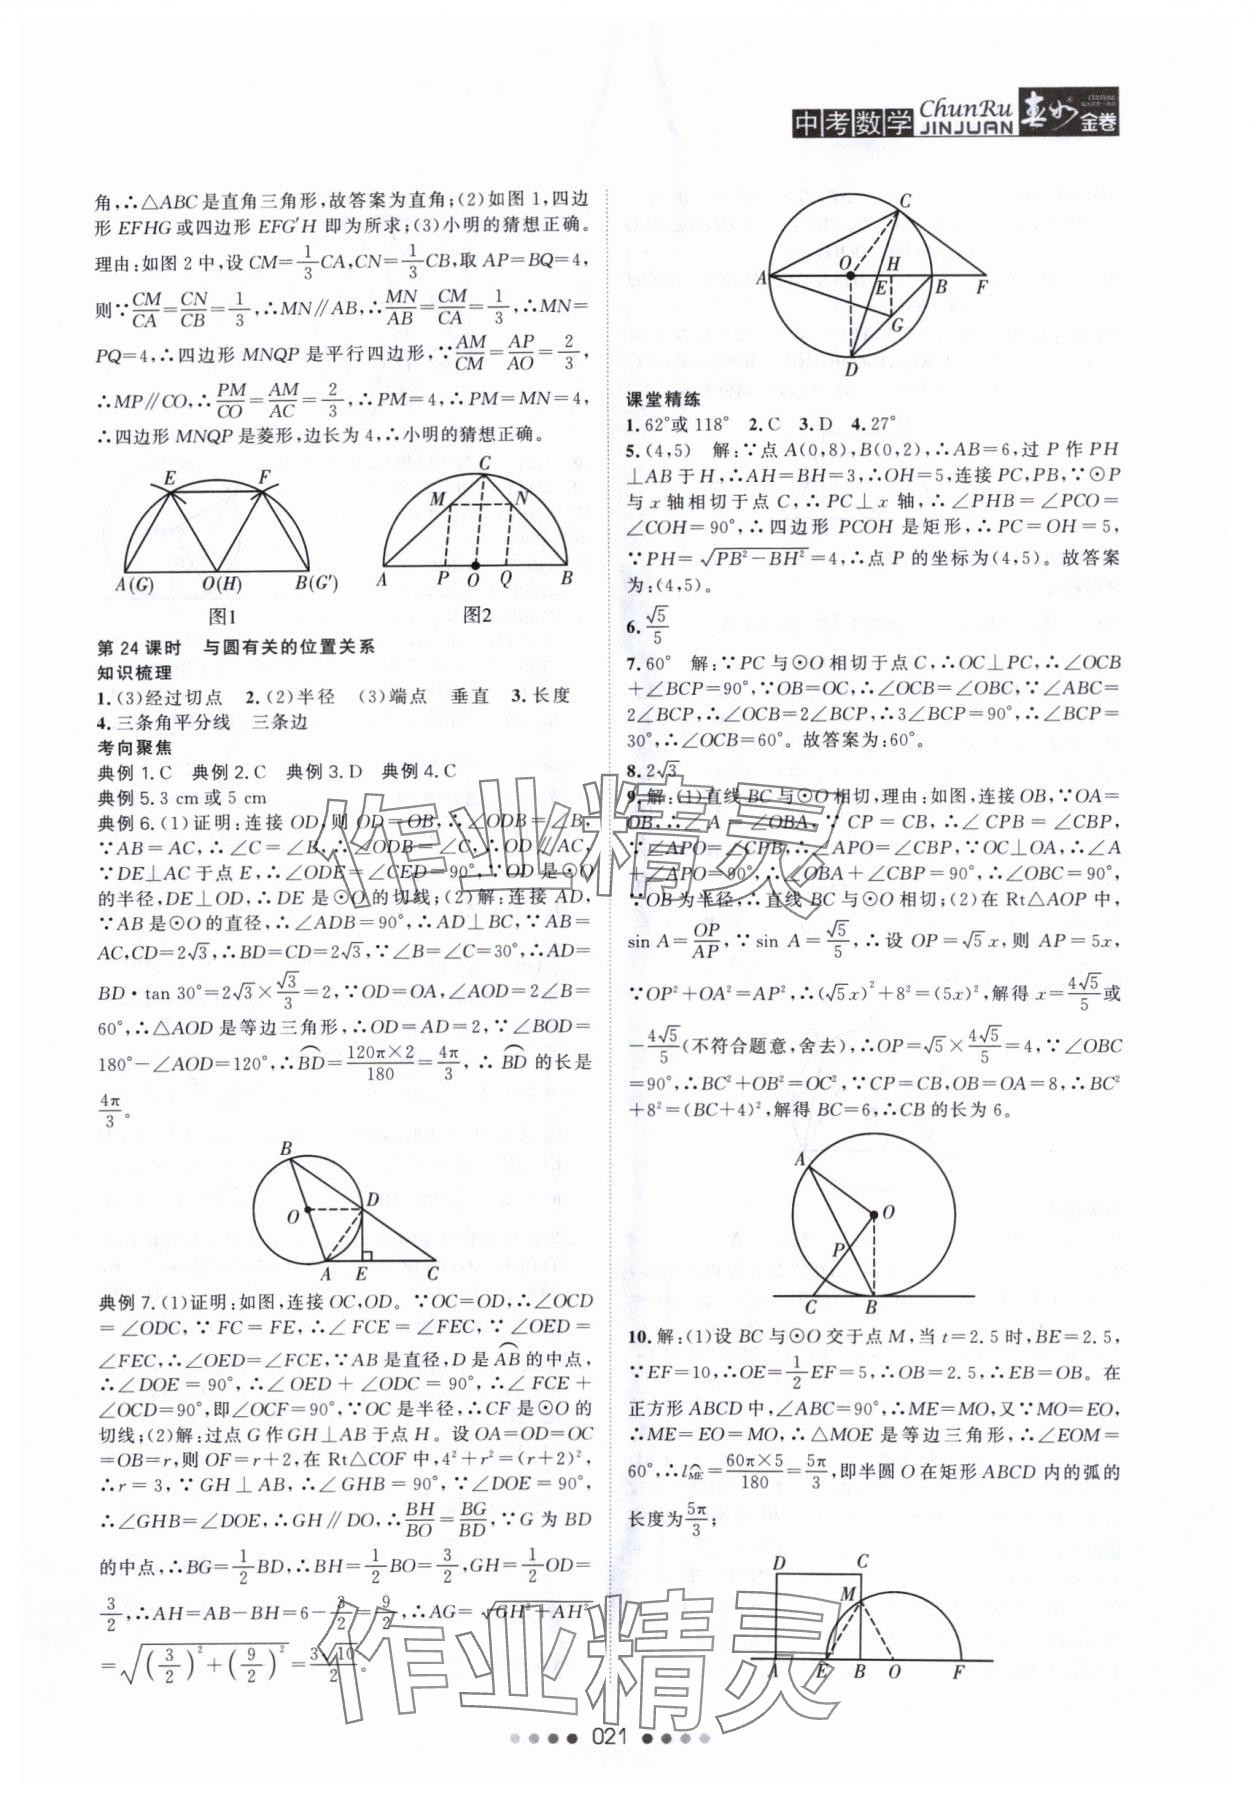 中考数学 ChunRu JINJUAN 春如金卷
角,∴△ABC是直角三角形,故答案为直角;(2)如图1,四边
形EFHG或四边形EFG′H即为所求;(3)小明的猜想正确。
理由:如图2中,设CM=1/3CA,CN=1/3CB,取AP=BQ=4,
则∵CM/CA=CN/CB=1/3,∴MN∥AB,∴MN/AB=CM/CA=1/3,∴MN=
PQ=4,∴四边形MNQP是平行四边形,∵AM/CM=AP/AO=2/3,
∴MP∥CO,∴PM/CO=AM/AC=2/3,∴PM=4,∴PM=MN=4,
∴四边形MNQP是菱形,边长为4,∴小明的猜想正确。
E F
A(G) O(H) B(G′)
图1
C
M N
A P O Q B
图2
第24课时 与圆有关的位置关系
知识梳理
1.(3)经过切点 2.(2)半径 (3)端点 垂直 3.长度
4.三条角平分线 三条边
考向聚焦
典例1.C 典例2.C 典例3.D 典例4.C
典例5.3 cm或5 cm
典例6.(1)证明:连接OD,则OD=OB,∴∠ODB=∠B,
∵AB=AC,∴∠C=∠B,∴∠ODB=∠C,∴OD∥AC,
∵DE⊥AC于点E,∴∠ODE=∠CED=90°,∵OD是⊙O
的半径,DE⊥OD,∴DE是⊙O的切线;(2)解:连接AD,
∵AB是⊙O的直径,∴∠ADB=90°,∴AD⊥BC,∵AB=
AC,CD=2√3,∴BD=CD=2√3,∵∠B=∠C=30°,∴AD=
BD·tan 30°=2√3×√3/3=2,∵OD=OA,∠AOD=2∠B=
60°,∴△AOD是等边三角形,∴OD=AD=2,∵∠BOD=
180°-∠AOD=120°,∴⌒BD=120π×2/180=4π/3,∴⌒BD的长是
4π/3。
B
D
O
A E C
典例7.(1)证明:如图,连接OC,OD。∵OC=OD,∴∠OCD
=∠ODC,∵FC=FE,∴∠FCE=∠FEC,∵∠OED=
∠FEC,∴∠OED=∠FCE,∵AB是直径,D是⌒AB的中点,
∴∠DOE=90°,∴∠OED+∠ODC=90°,∴∠FCE+
∠OCD=90°,即∠OCF=90°,∵OC是半径,∴CF是⊙O的
切线;(2)解:过点G作GH⊥AB于点H。设OA=OD=OC
=OB=r,则OF=r+2,在Rt△COF中,4²+r²=(r+2)²,
∴r=3,∵GH⊥AB,∴∠GHB=90°,∵∠DOE=90°,
∴∠GHB=∠DOE,∴GH∥DO,∴BH/BO=BG/BD,∵G为BD
的中点,∴BG=1/2BD,∴BH=1/2BO=3/2,GH=1/2OD=
3/2,∴AH=AB-BH=6-3/2=9/2,∴AG=√(GH²+AH²)
=√((3/2)²+(9/2)²)=3√10/2。
C
O H
A E B F
G
D
课堂精练
1.62°或118° 2.C 3.D 4.27°
5.(4,5) 解:∵点A(0,8),B(0,2),∴AB=6,过P作PH
⊥AB于H,∴AH=BH=3,∴OH=5,连接PC,PB,∵⊙P
与x轴相切于点C,∴PC⊥x轴,∴∠PHB=∠PCO=
∠COH=90°,∴四边形PCOH是矩形,∴PC=OH=5,
∵PH=√(PB²-BH²)=4,∴点P的坐标为(4,5)。故答案
为:(4,5)。
6.√5/5
7.60° 解:∵PC与⊙O相切于点C,∴OC⊥PC,∴∠OCB
+∠BCP=90°,∵OB=OC,∴∠OCB=∠OBC,∵∠ABC=
2∠BCP,∴∠OCB=2∠BCP,∴3∠BCP=90°,∴∠BCP=
30°,∴∠OCB=60°。故答案为:60°。
8.2√3
9.解:(1)直线BC与⊙O相切,理由:如图,连接OB,∵OA=
OB,∴∠A=∠OBA,∵CP=CB,∴∠CPB=∠CBP,
∵∠APO=∠CPB,∴∠APO=∠CBP,∵OC⊥OA,∴∠A
+∠APO=90°,∴∠OBA+∠CBP=90°,∴∠OBC=90°,
∵OB为半径,∴直线BC与⊙O相切;(2)在Rt△AOP中,
sin A=OP/AP,∵sin A=√5/5,∴设OP=√5x,则AP=5x,
∵OP²+OA²=AP²,∴(√5x)²+8²=(5x)²,解得x=4√5/5或
-4√5/5(不符合题意,舍去),∴OP=√5×4√5/5=4,∵∠OBC
=90°,∴BC²+OB²=OC²,∵CP=CB,OB=OA=8,∴BC²
+8²=(BC+4)²,解得BC=6,∴CB的长为6。
A
O
P
C B
10.解:(1)设BC与⊙O交于点M,当t=2.5时,BE=2.5,
∵EF=10,∴OE=1/2EF=5,∴OB=2.5,∴EB=OB。在
正方形ABCD中,∠ABC=90°,∴ME=MO,又∵MO=EO,
∴ME=EO=MO,∴△MOE是等边三角形,∴∠EOM=
60°,∴l⌒ME=60π×5/180=5π/3,即半圆O在矩形ABCD内的弧的
长度为5π/3;
D C
M
A E B O F
作业精灵
作业精灵
021